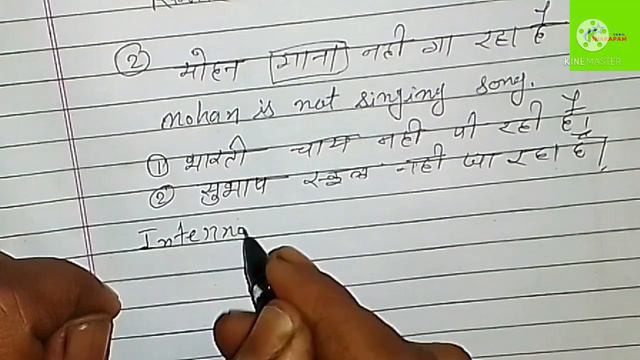 ② मोहन गाना नही गा रहा है
mohan is not singing song.
① भारती चाय नही पी रही है।
② सुभाष स्कूल नही जा रहा है।
Interna
KINEMASTER